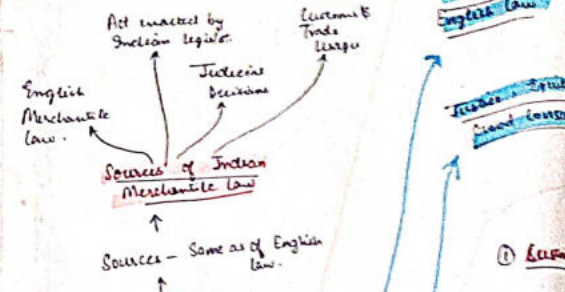 Act enacted by
Indian legis.
Customs &
Trade
Usage
Judicial
Decisions
English
Merchantile
law.
Sources of Indian
Merchantile Law
Sources – Same as of English
law.
English Law
Justice,
Good
①